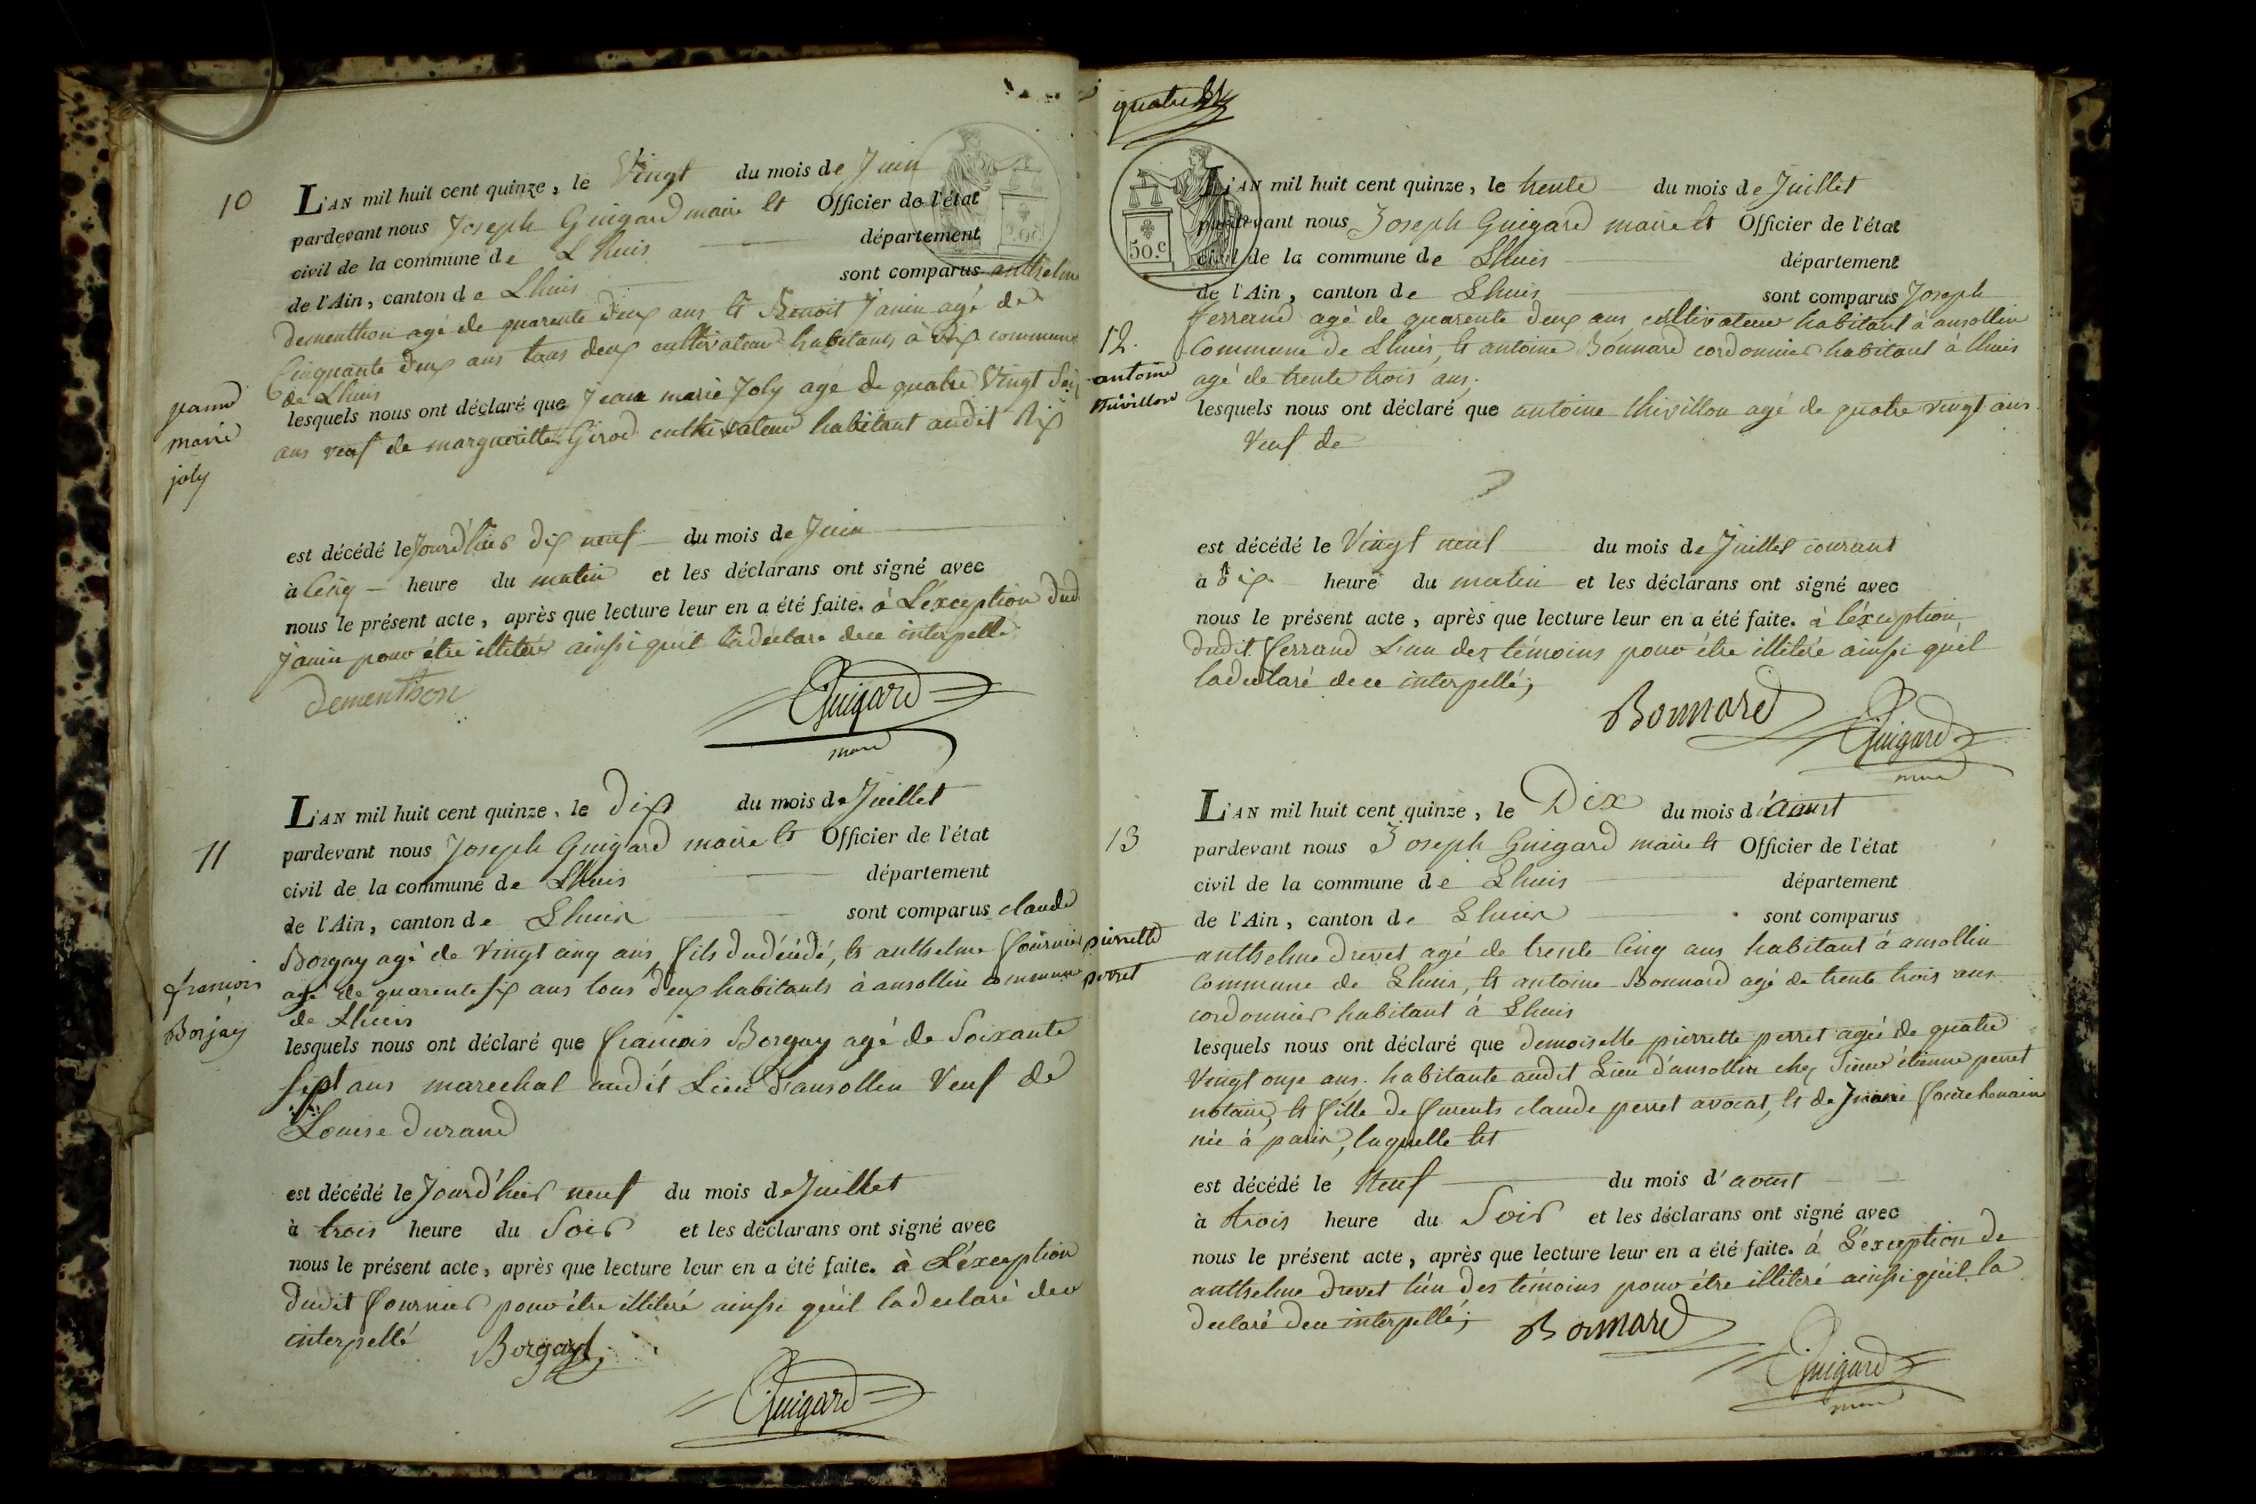 10
L'AN mil huit cent quinze, le Vingt du mois de Juin
pardevant nous Joseph Guigard maire et Officier de l'état
civil de la commune de Lhuis département
de l'Ain, canton de Lhuis sont comparus anthelme
Dementhon agé de quarente deux ans et Benoit Janin agé de
Cinquante deux ans tous deux cultivateur habitants à Rix commune
de Lhuis
lesquels nous ont déclaré que Jean marie Joly agé de quatre Vingt Six
ans veuf de margueritte Girod cultivateur habitant audit Rix
marie
joly
est décédé le Jourd'hier dix neuf du mois de Juin
à Cinq heure du matin et les déclarans ont signé avec
nous le présent acte, après que lecture leur en a été faite. à L'exception dud
Janin pour être illiteré ainsi quil la déclaré de ce interpellé
Dementhon
Guigard
maire
11
L'AN mil huit cent quinze, le Dix du mois de Juillet
pardevant nous Joseph Guigard maire et Officier de l'état
civil de la commune de Lhuis département
de l'Ain, canton de Lhuis sont comparus claude
Borgay agé de Vingt cinq ans fils dudécédé, et anthelme fournier
agé de quarente six ans tous deux habitants à ansollin commune
de Lhuis
francois
Borjay
lesquels nous ont déclaré que francois Borgay agé de Soixante
Sept ans marechal audit Lieu d'ansollin Veuf de
Louise Durand
est décédé le Jourd'hier neuf du mois de Juillet
à trois heure du Soir et les déclarans ont signé avec
nous le présent acte, après que lecture leur en a été faite. à L'éxception
dudit fournier pour être illiteré ainsi qu'il la déclaré de ce
interpellé
Borgay
Guigard
quatre
50.c
L'AN mil huit cent quinze, le trente du mois de Juillet
pardevant nous Joseph Guigard maire et Officier de l'état
civil de la commune de Lhuis département
de l'Ain, canton de Lhuis sont comparus Joseph
ferrand agé de quarente deux ans cultivateur habitant à ansollin
Commune de Lhuis, et antoine Bonnard cordonnier habitant à Lhuis
agé de trente trois ans.
12.
antoine
thivillon
lesquels nous ont déclaré que antoine thivillon agé de quatre vingt ans
Veuf de
est décédé le Vingt neuf du mois de Juillet courant
à dix heure du matin et les déclarans ont signé avec
nous le présent acte, après que lecture leur en a été faite. à l'éxception
dudit ferrand L'un des témoins pour être illiteré ainsi qu'il
la declaré de ce interpellé;
Bonnard
Guigard
maire
13
L'AN mil huit cent quinze, le Dix du mois d'Aoust
pardevant nous Joseph Guigard maire et Officier de l'état
civil de la commune de Lhuis département
de l'Ain, canton de Lhuis sont comparus
pierrette
perret
anthelme drevet agé de trente Cinq ans habitant à ansollin
Commune de Lhuis, et antoine Bonnard agé de trente trois ans
cordonnier habitant à Lhuis
lesquels nous ont déclaré que demoiselle pierrette perret agée de quatre
Vingt onze ans. habitante audit Lieu d'ansollin chez Sieur étienne perret
notaire, et fille de furents claude perret avocat, et de
née à paris, laquelle est
est décédé le Neuf du mois d'aoust
à trois heure du Soir et les déclarans ont signé avec
nous le présent acte, après que lecture leur en a été faite. à L'exception de
anthelme drevet l'un des témoins pour être illiteré ainsi qu'il la
declaré de ce interpellé;
Bonnard
Guigard
maire